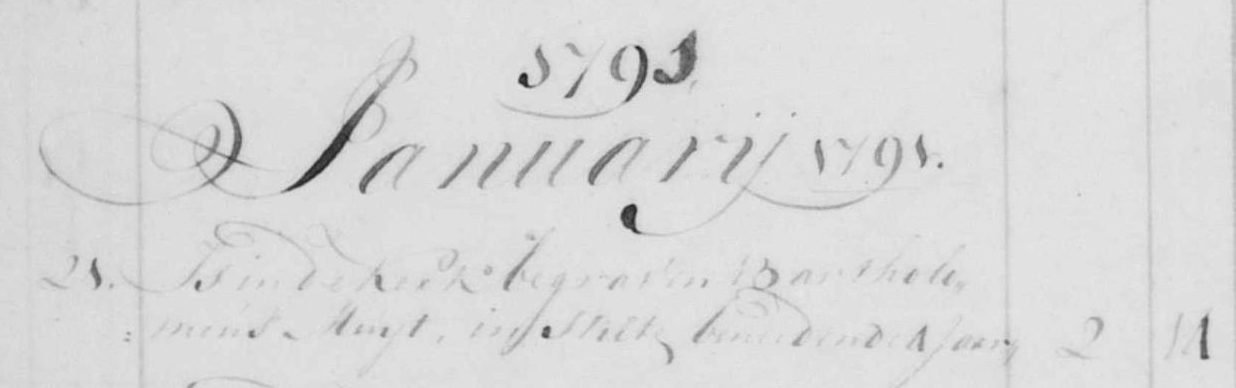 1791
Januarij 1791.
21. Is in de kerk begraven Barthole,
: meus Muyt, in Stilte, beneden de 1 Jaar, 2 11